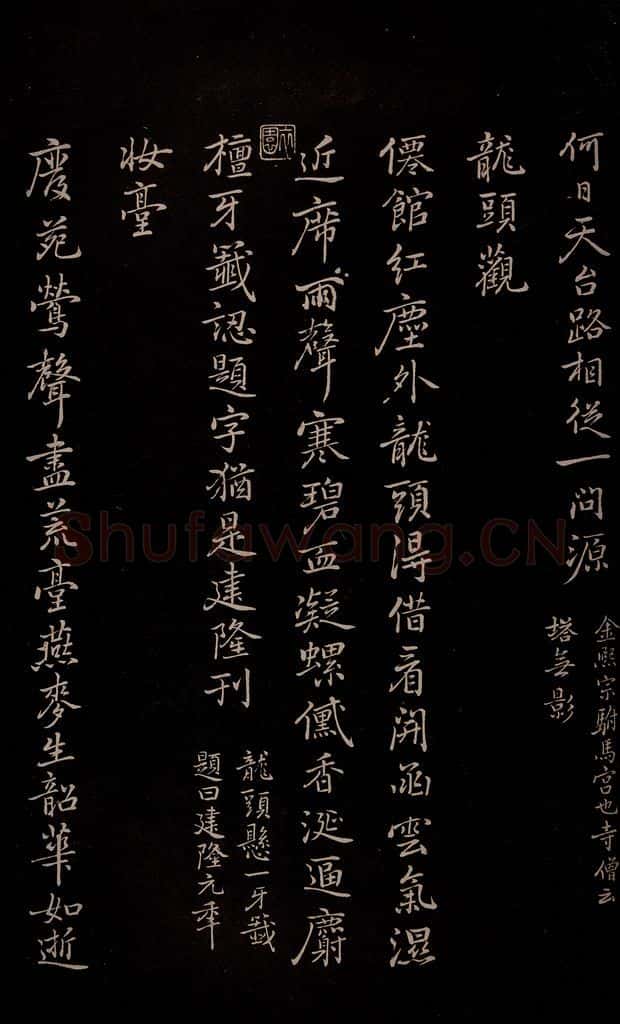 何日天台路相從一問源
金熙宗駙馬宮也寺僧云
塔無影
龍頭觀
僊館紅塵外龍頭得借看開函雲氣濕
近席雨聲寒碧血凝螺香涎逼麝
檀牙籤認題字猶是建隆刊
龍頭懸一牙籤
題曰建隆元年
妝臺
廢苑鶯聲盡荒臺燕麥生韶華如逝
Shufawang.CN